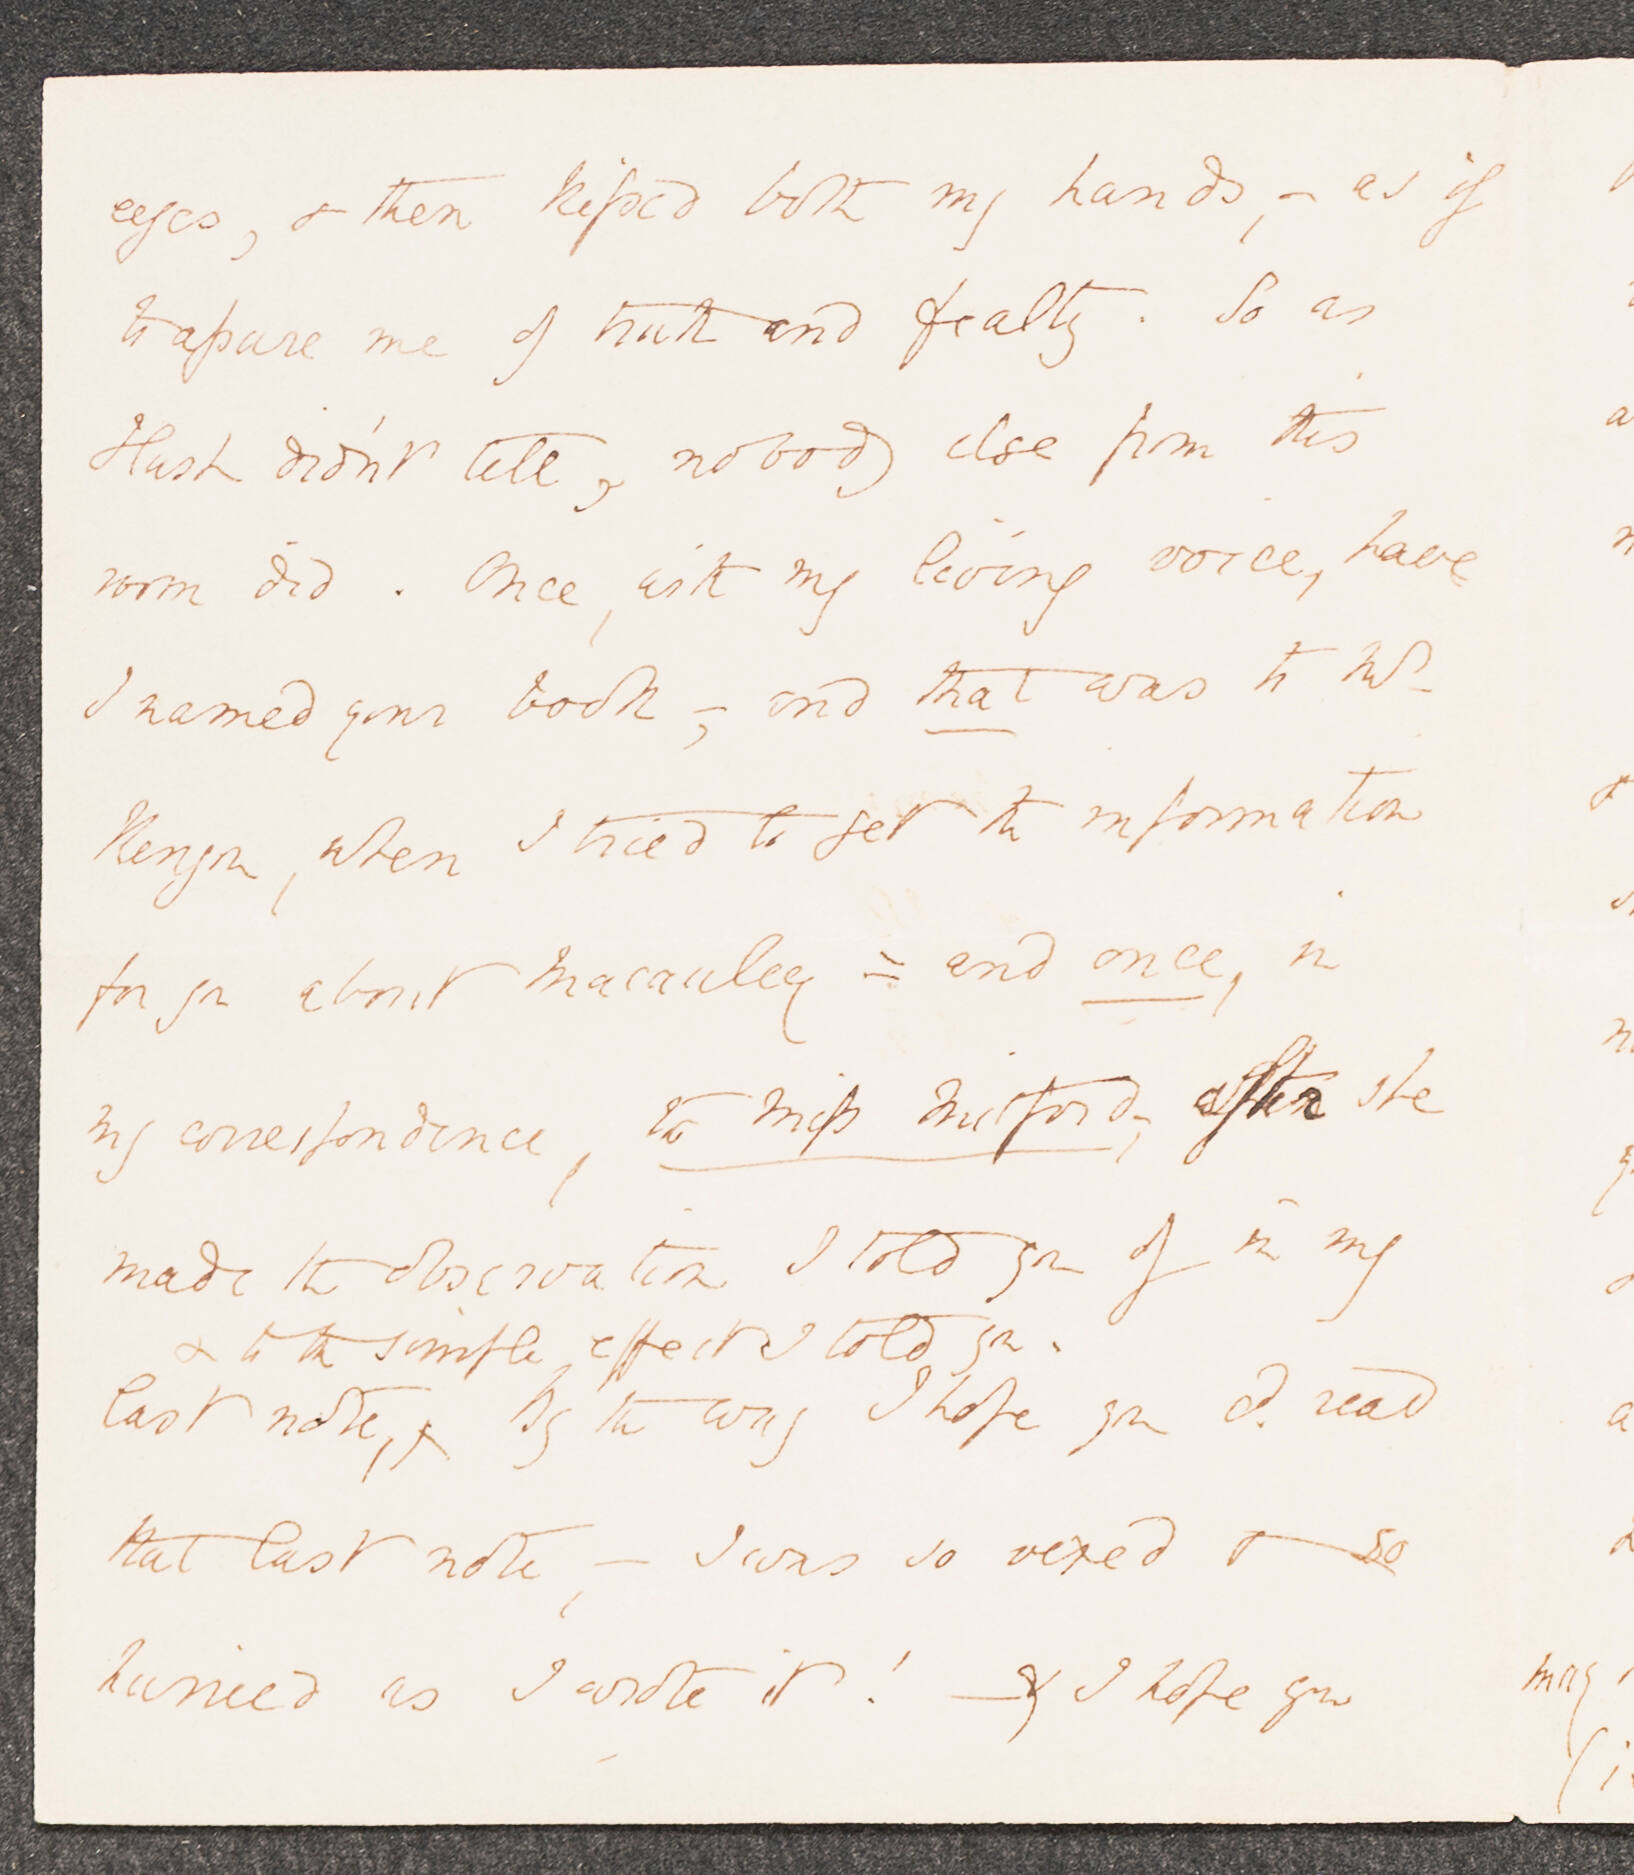 eyes, & then kissed both my hands,– as if
to assure me of truth and fealty. So as
Flush did'nt tell, nobody else from this
room did. Once, with my living voice, have
I named your book –, and that was to Mr.
Kenyon, when I tried to get the information
for you about Macauley = and once, in
my correspondence, to Miss Mitford, after she
made the observation I told you of in my
& to the simple effect I told you.
last note,, By the way I hope you cd. read
that last note,– I was so vexed & so
hurried as I wrote it! – I hope you
may